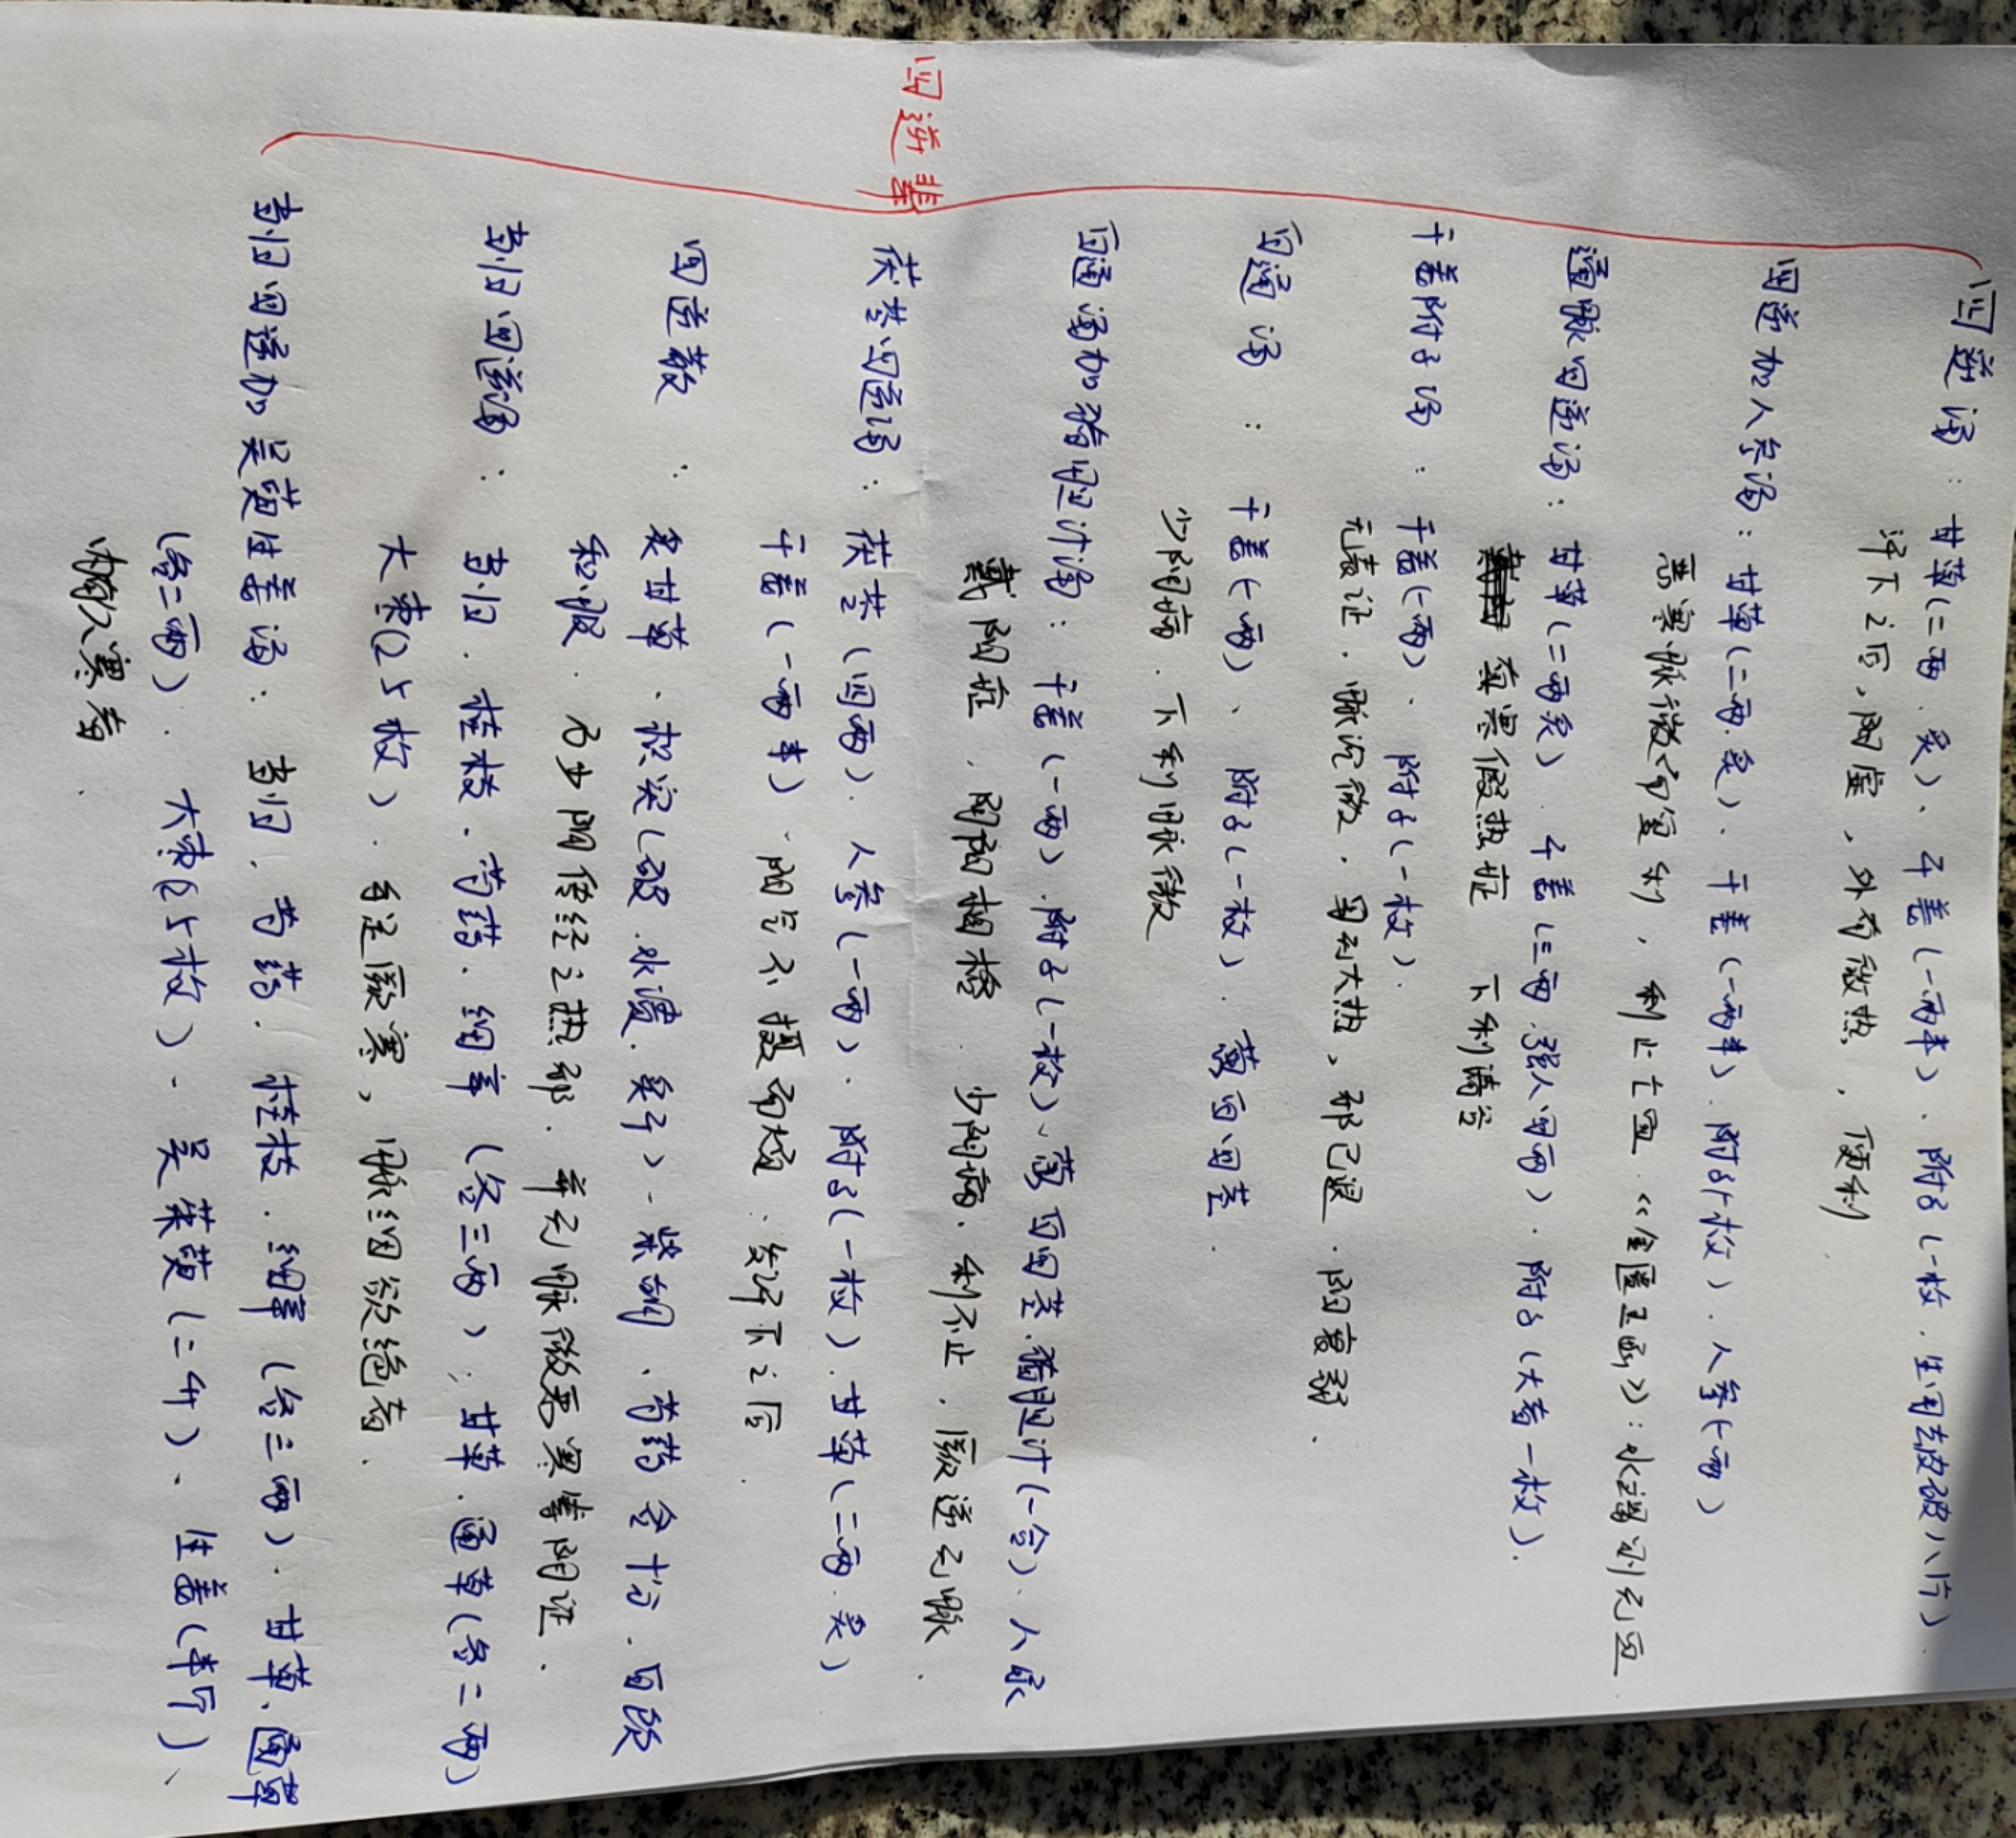 四逆辈
四逆汤：甘草(二两 炙)、干姜(一两半)、附子(一枚.生用去皮破八片).
汗下之后,阳虚,外有微热,便利
四逆加人参汤：甘草(二两.炙).干姜(一两半).附子(一枚).人参(一两)
恶寒脉微而复利,利止亡血.《金匮玉函》:水谓利无血
通脉四逆汤：甘草(二两炙).干姜(三两.强人四两).附子(大者一枚).
真寒假热症 下利清谷
干姜附子汤：干姜(一两)、附子(一枚).
无表证.脉沉微.身无大热,邪已退.阳衰弱.
白通汤：干姜(一两)、附子(一枚).葱白四茎.
少阴病.下利脉微
白通汤加猪胆汁汤：干姜(一两).附子(一枚)、葱白四茎.猪胆汁(一合).人尿
戴阳症.阴阳相格.少阴病.利不止.厥逆无脉.
茯苓四逆汤：茯苓(四两).人参(一两).附子(一枚).甘草(二两 炙)
干姜(一两半).阳气不摄而烦.发汗下之后.
四逆散：炙甘草、枳实(破.水渍.炙干)-柴胡、芍药各十分.白饮
和服.为少阴传经之热邪.并无脉微恶寒等阴证.
当归四逆汤：当归.桂枝.芍药.细辛(各三两);甘草.通草(各二两)
大枣(25枚).手足厥寒,脉细欲绝者.
当归四逆加吴萸生姜汤：当归.芍药.桂枝.细辛(各三两).甘草.通草
(各二两).大枣(25枚).吴茱萸(二升)、生姜(半斤)、
内有久寒者.